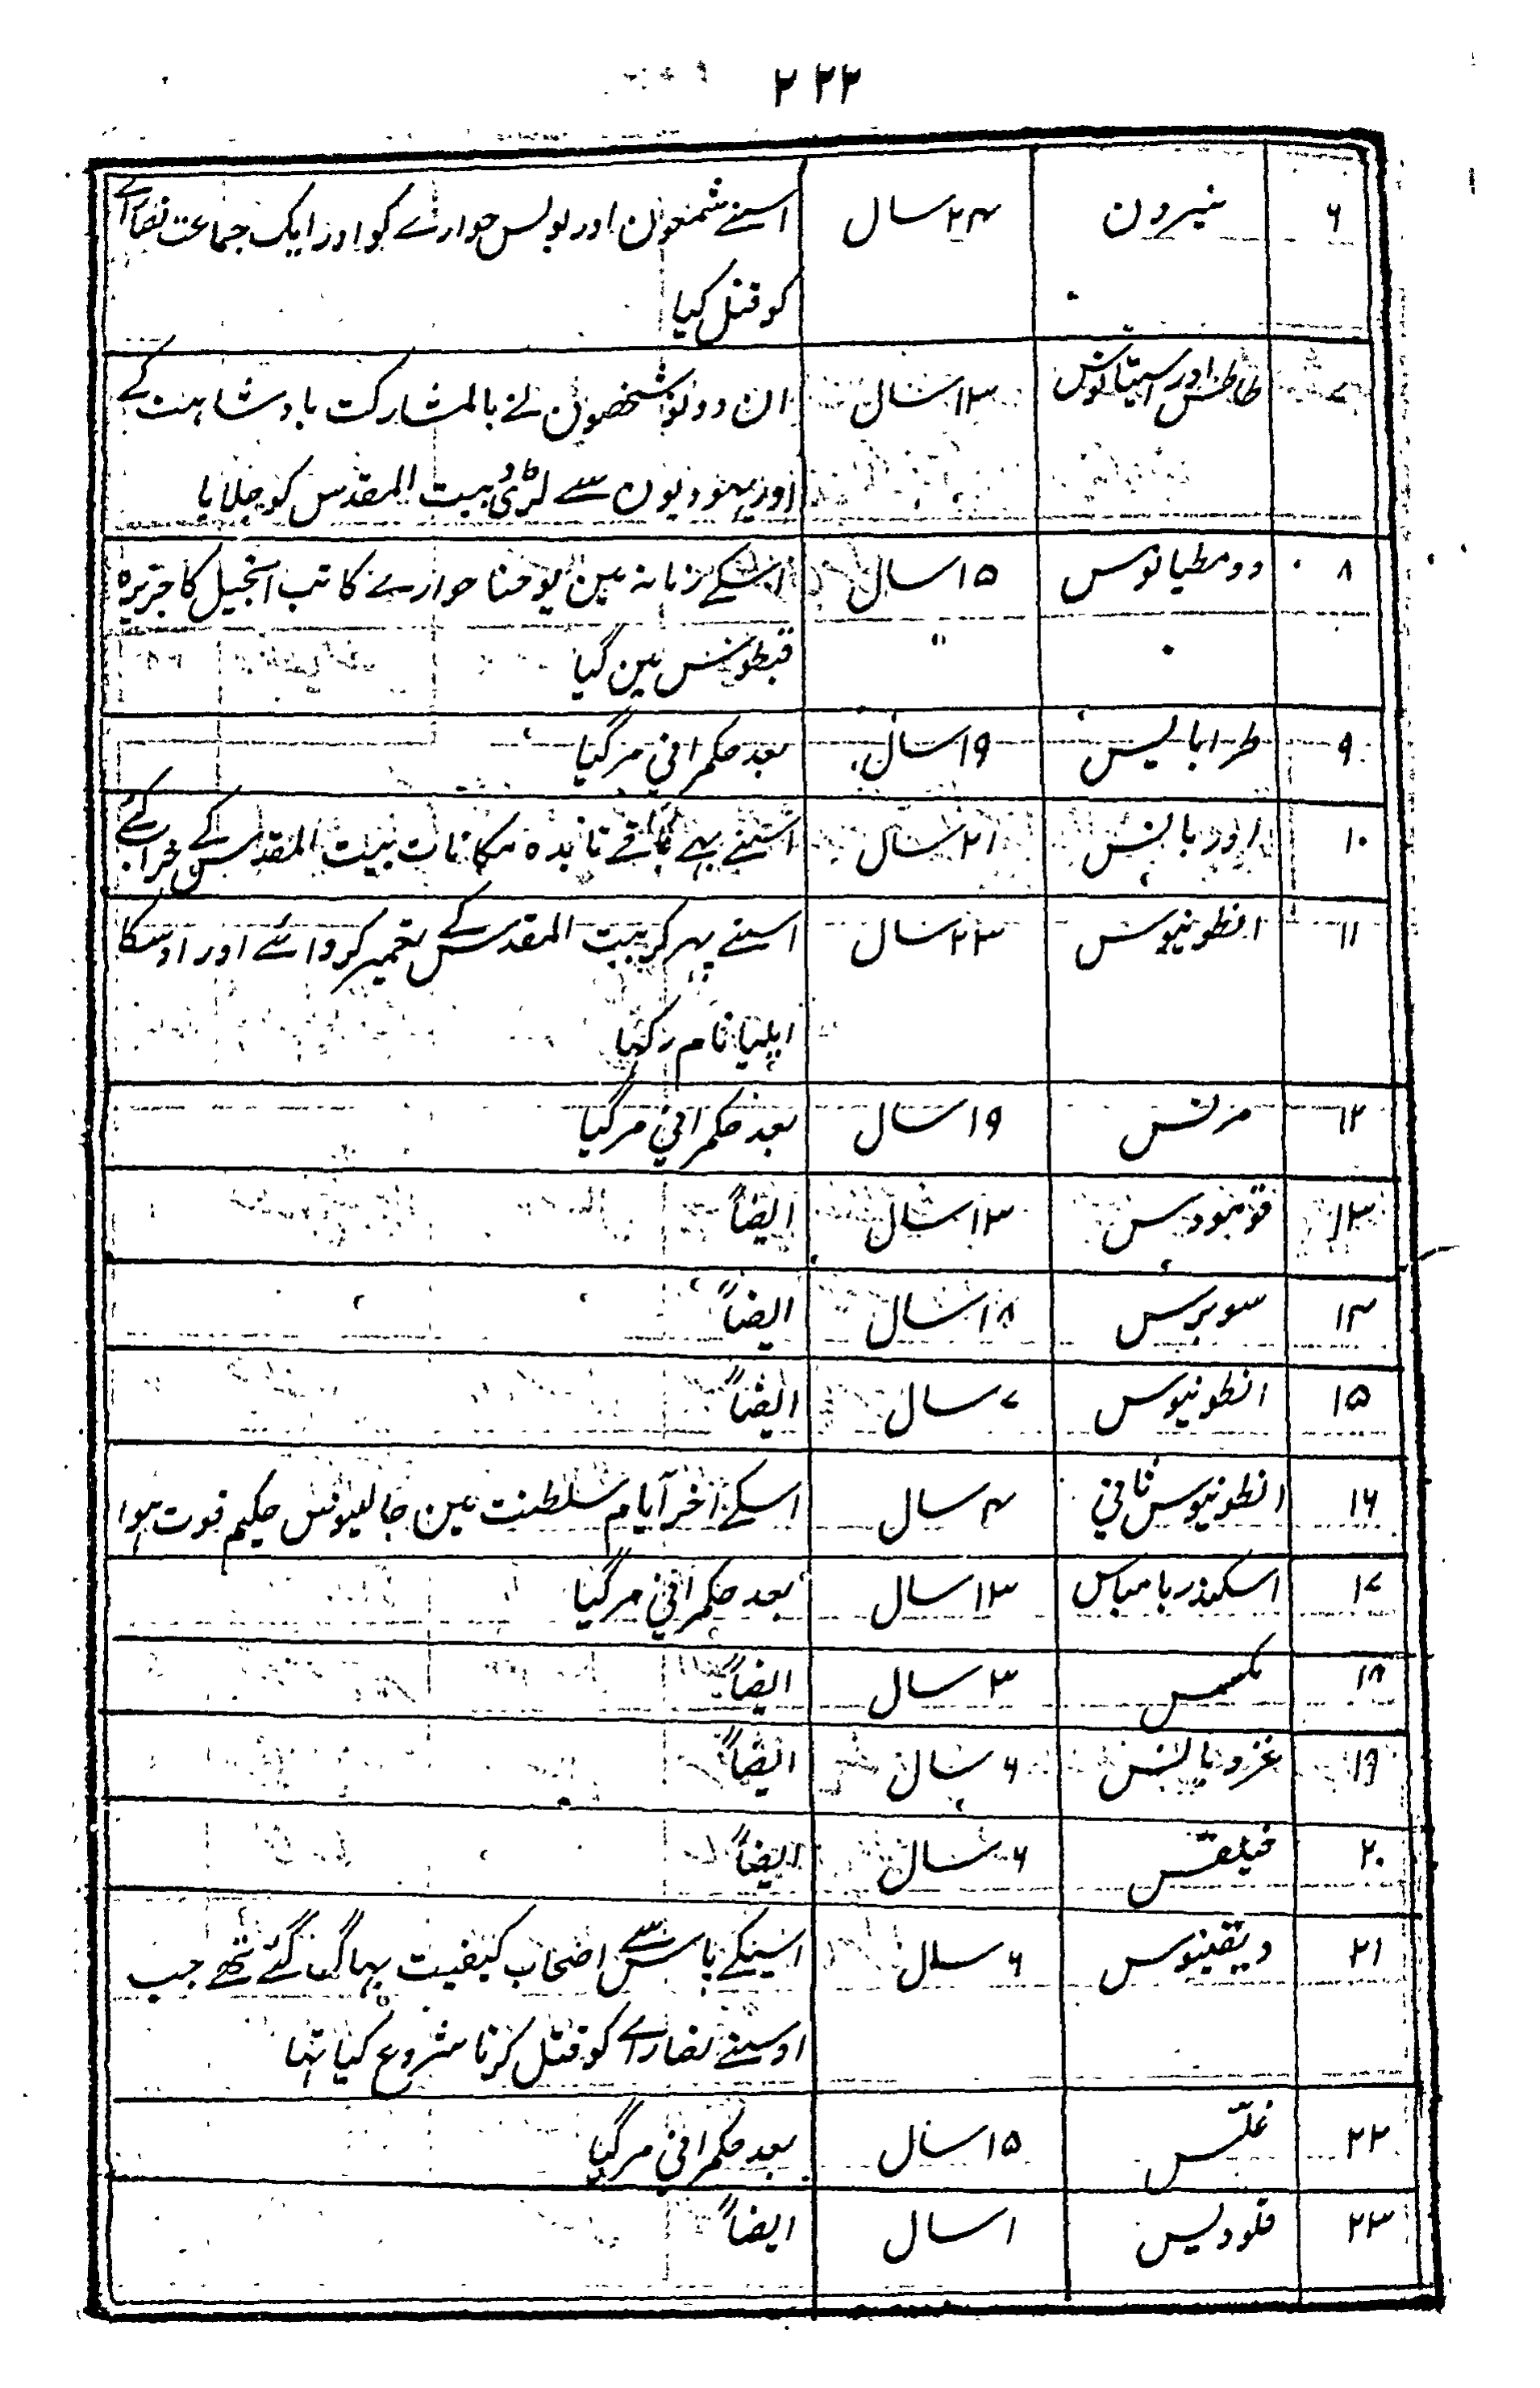 ۲۲۲
۶ نیرون ۲۴ سال اسنے شمعون اور پولس حوارے کو اور ایک جماعت نصارے
کو قتل کیا
۷ طاطش اور اسپتانوش ۱۳ سال ان دونو شخصون نے بالمشارکت بادشاہت کے
اور یہودیون سے لڑی بیت المقدس کو جلایا
۸ دومطیانوس ۱۵ سال اسکے زمانہ مین یوحنا حوارے کاتب انجیل کا جزیرہ
قبطونس مین گیا
۹ طرابالیس ۱۹ سال بعد حکمرانی مرگیا
۱۰ اوربانس ۲۱ سال اسنے بہے باقے ناندہ مکانات بیت المقدس کے خراب کے
۱۱ انطونیوس ۲۳ سال اسنے پہر کر بیت المقدس کے تعمیر کروائے اور اوسکا
ایلیا نام رکہا
۱۲ مرنس ۱۹ سال بعد حکمرانی مرگیا
۱۳ قومودس ۱۳ سال ایضاً
۱۴ سویرس ۱۸ سال ایضاً
۱۵ انطونیوس ۷ سال ایضاً
۱۶ انطونیوس ثانی ۴ سال اسکے آخر آیام سلطنت مین جالینوس حکیم فوت ہوا
۱۷ اسکندر بامیاس ۱۳ سال بعد حکمرانی مرگیا
۱۸ مکسمس ۳ سال ایضاً
۱۹ غردیانس ۶ سال ایضاً
۲۰ فیلقس ۶ سال ایضاً
۲۱ دیقینوس ۶ سال اسیکے پاس سے اصحاب کیفیت بہاگ گئے تھے جب
اوسنے نصارے کو قتل کرنا شروع کیا تہا
۲۲ غلّس ۱۵ سال بعد حکمرانی مرگیا
۲۳ قلودیس ۱ سال ایضاً